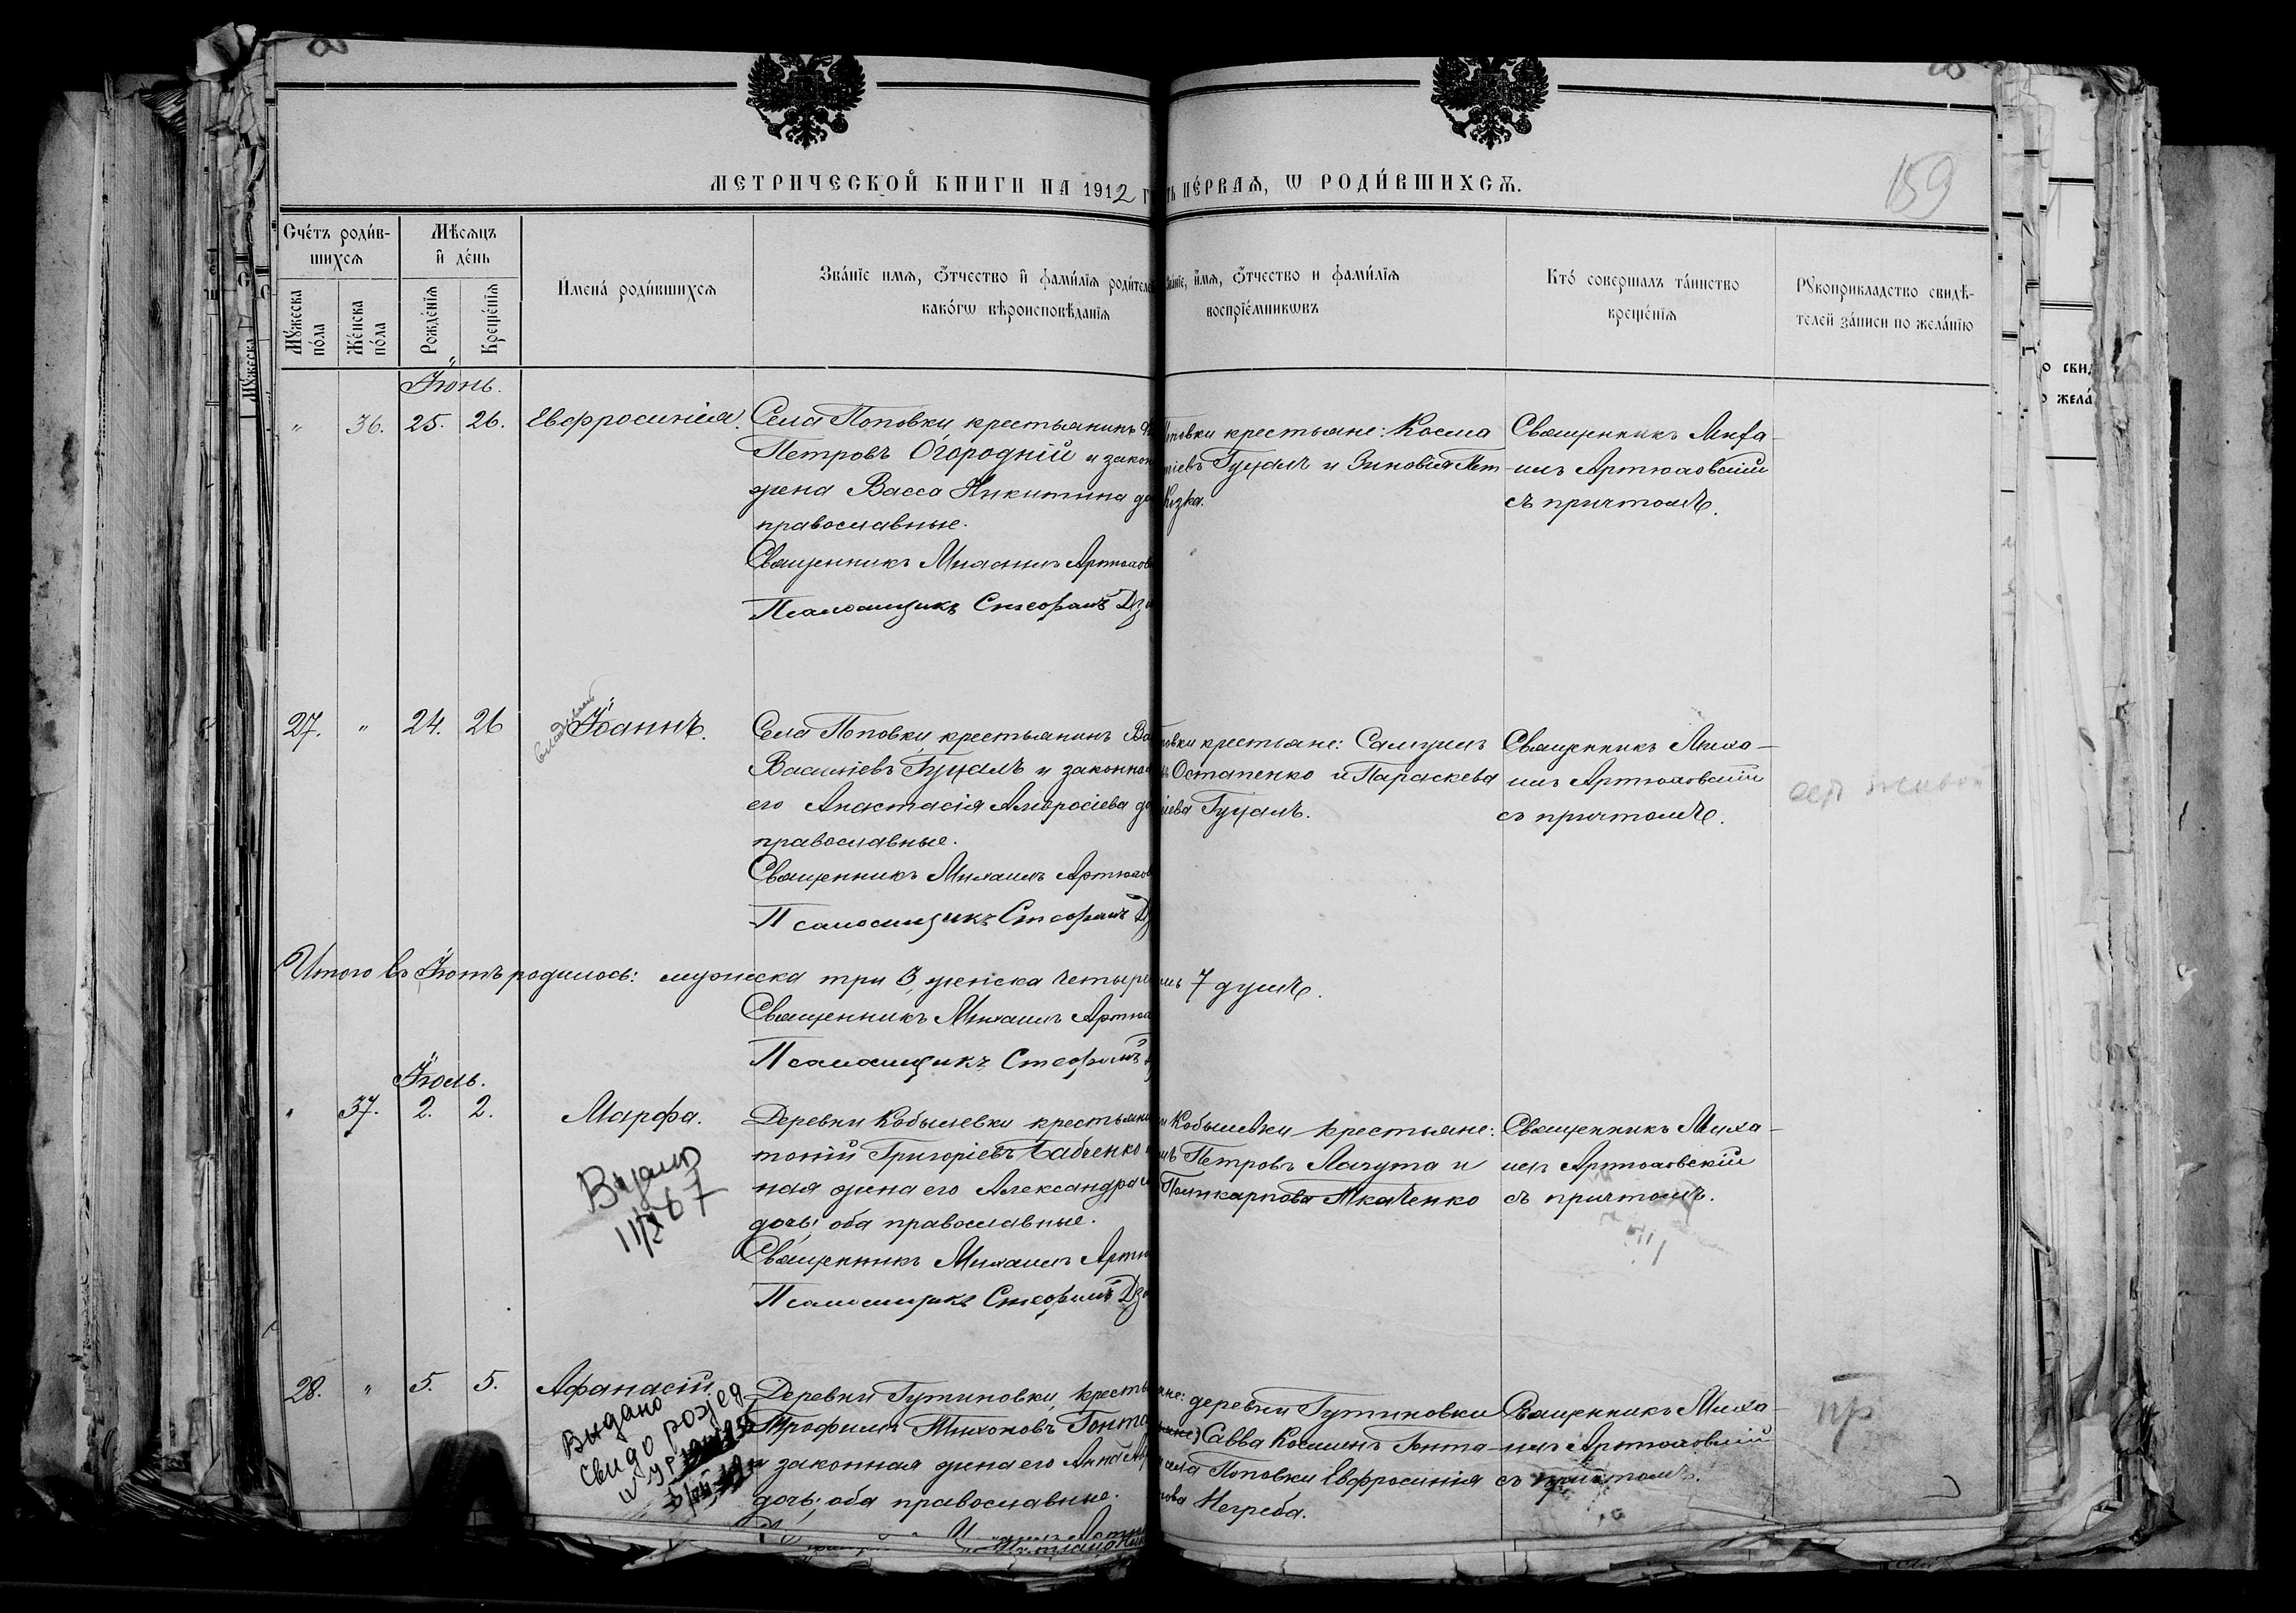 МЕТРИЧЕСКОЙ КНИГИ НА 1912 Г
ть пе́рвая, ѡ роди́вшихсѧ.
159
Сче́тъ роди́в-
шихсѧ
Мѣсѧцъ
и҆ де́нь
Мꙋ́жеска по́ла
Же́нска по́ла
Рожде́нїѧ
Креще́нїѧ
И҆мена̀ роди́вшихсѧ
Зва́нїе имѧ, ѻ҆́тчество и҆ фами́лїѧ родите́лей
како́гѡ вѣроисповѣ́данїѧ
зва́нїе, и҆́мѧ, ѻ҆́тчество и фами́лїѧ
воспрїе́мникѡвъ
Кто́ соверша́лъ та́инство
креще́нїѧ
Рꙋкоприкладство свидѣ́-
телей за́писи по жела́нїю
Іюнь.
" 36. 25. 26. Евфросинія.
Села Поповки, крестьянинъ
Петровъ Огородній и закон
жена Васса Никитина до
православные.
Священникъ Михаилъ Артюхов
Псаломщикъ Стефанъ Дз
повки крестьяне: Косма
тіевъ Гуцалъ и Зиновія Пет
Кузка.
Священникъ Миха-
илъ Артюховскій
съ причтомъ.
27. " 24. 26 Іоаннъ.
Села Поповки, крестьянинъ Ва
Василіевъ Гуцалъ и законна
его Анастасія Амвросіева до
православные.
Священникъ Михаилъ Артюхов
Псаломщикъ Стефанъ Дз
овки крестьяне: Самуилъ
въ Остапенко и Параскева
іева Гуцалъ.
Священникъ Миха-
илъ Артюховскій
съ причтомъ.
Итого въ Іюнѣ родилось: мужеска три 3, женска четыре
мъ 7 душъ.
Священникъ Михаилъ Артюх
Псаломщикъ Стефанъ
Іюль.
" 37. 2. 2. Марфа.
Видано
11/X 67
Деревни Кобылевки крестьяни
тоній Григоріевъ Бабченко и
ная жена его Александра
дочь; оба православные.
Священникъ Михаилъ Артю
Псаломщикъ Стефанъ Дз
и Кобылевки крестьяне:
нъ Петровъ Лачута и
Поликарпова Ткаченко
Священникъ Миха-
илъ Артюховскій
съ причтомъ.
28. " 5. 5. Афанасій.
Видано
свидо
Деревни Гутиновки, кресть
Трофимъ Тихоновъ Гонта
и законная жена его Анна
дочь; оба православные.
яне: деревни Гутиновки
Савва Косминъ Гонта
и села Поповки Евфросинія
рова Негреба.
Священникъ Миха-
илъ Артюховскій
съ причтомъ.
пр